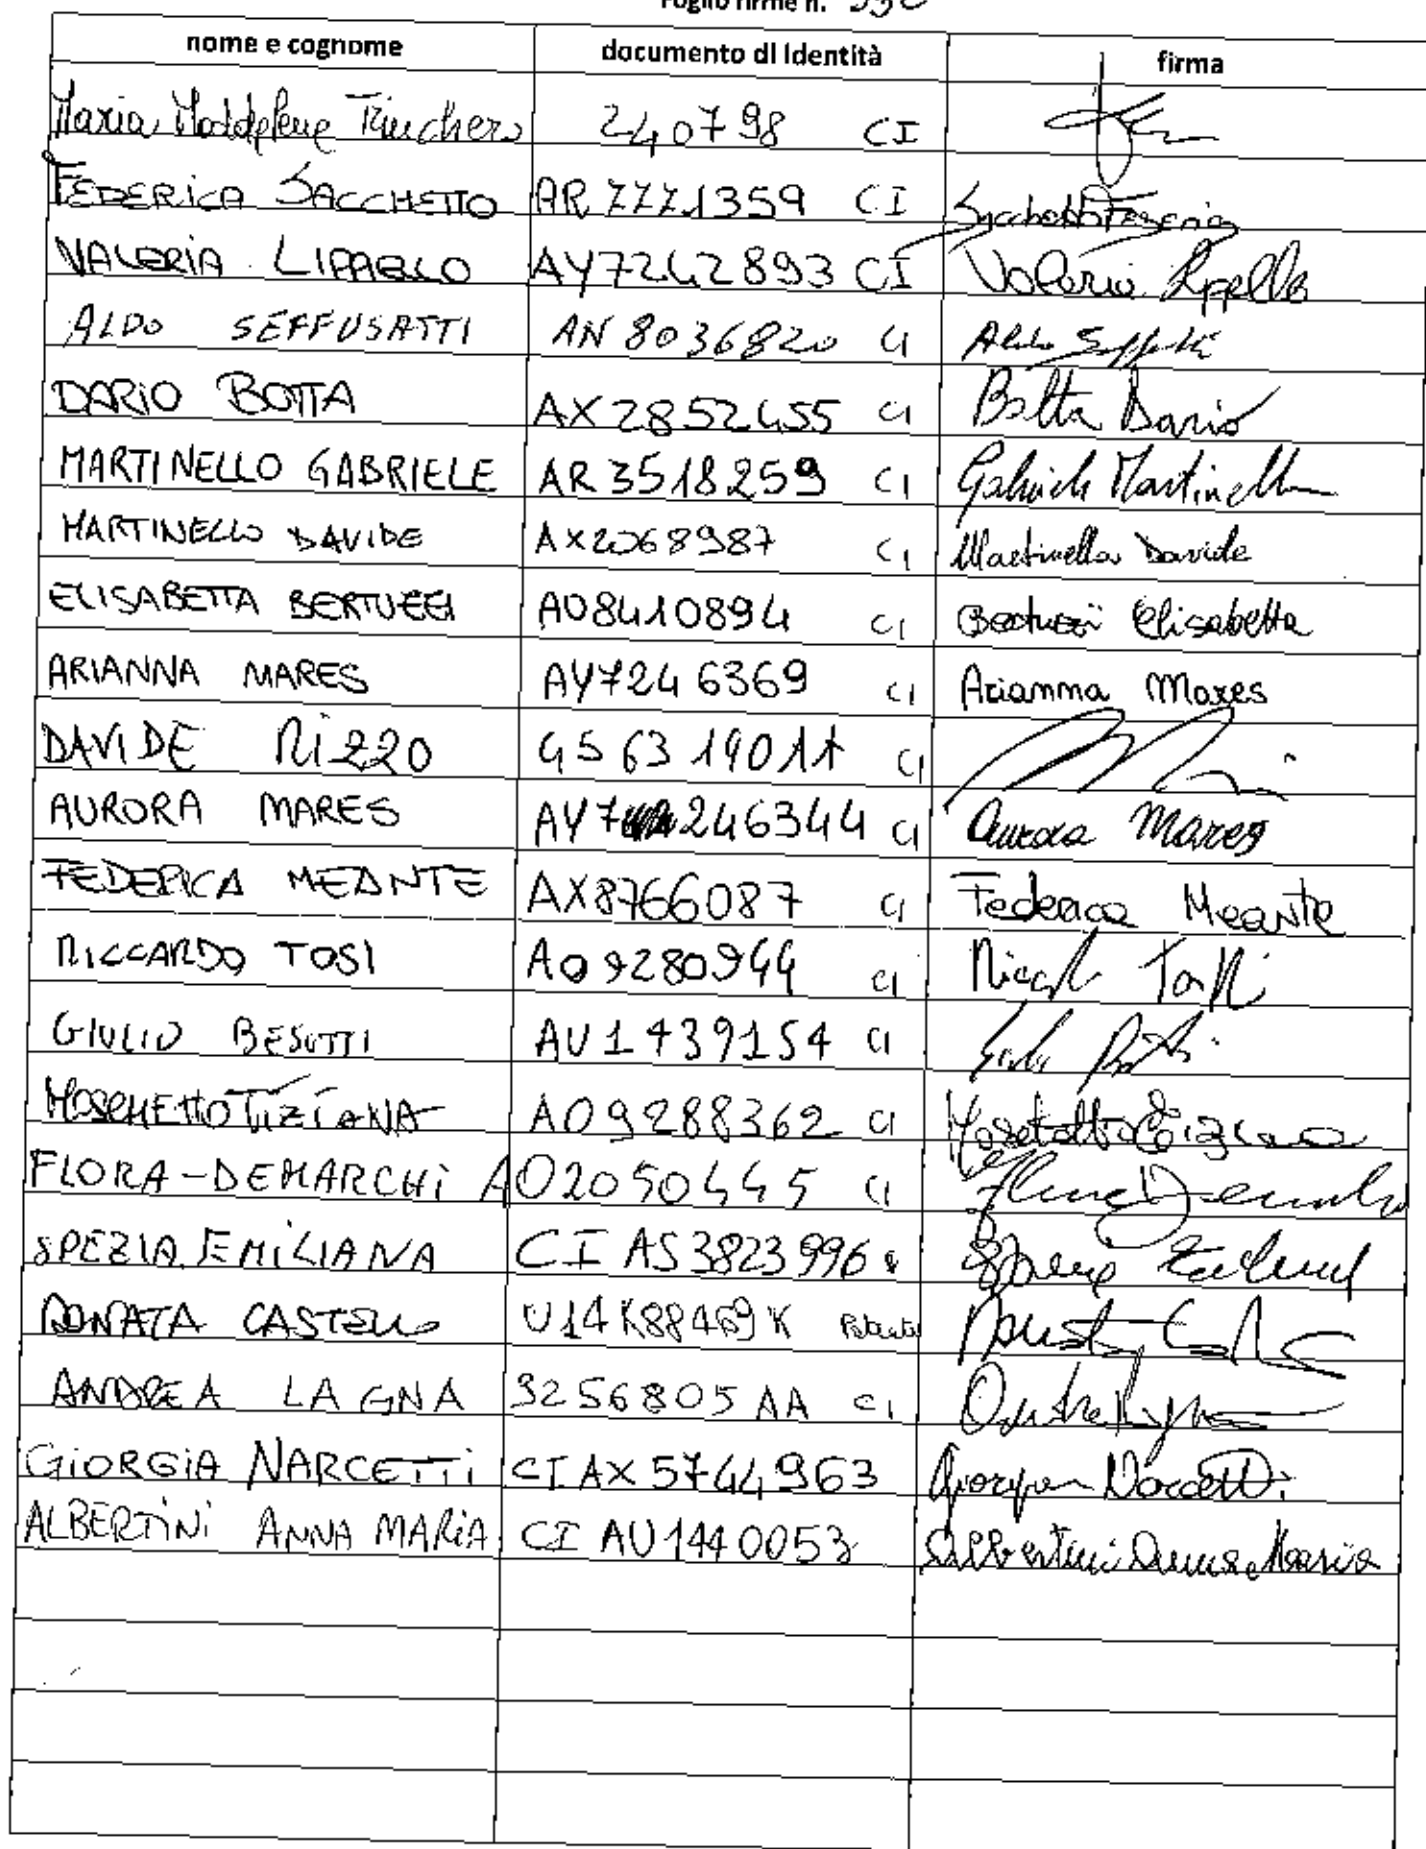 Foglio firme n.
nome e cognome documento di Identità firma
Maria Maddalena Trinchero 240798 CI
FEDERICA SACCHETTO AR 7771359 CI Sacchetto Federica
VALERIA LIPPELLO AY7242893 CI Valeria Lippello
ALDO SEFFUSATTI AN 8036820 CI Aldo
DARIO BOTTA AX2852455 CI Botta Dario
MARTINELLO GABRIELE AR 3518259 CI Gabriele Martinello
MARTINELLO DAVIDE AX2068987 CI Martinello Davide
ELISABETTA BERTUZZI AU8410894 CI Bertuzzi Elisabetta
ARIANNA MARES AY7246369 CI Arianna Mares
DAVIDE RIZZO CI
AURORA MARES AY7 246344 CI Aurora Mares
FEDERICA MEANTE AX8766087 CI Federica Meante
RICCARDO TOSI AO9280944 CI
GIULIO BESUTTI AU1439154 CI
MOSCHETTO TIZIANA AO9288362 CI Moschetto Tiziana
FLORA-DEMARCHI AO2050445 CI
SPEZIA EMILIANA CI AS3823996
DONATA CASTELLO U14K88469K Patente
ANDREA LAGNA 3256805AA CI
GIORGIA NARCETTI CI AX5744963 Giorgia Narcetti
ALBERTINI ANNA MARIA CI AU1440053 Albertini Anna Maria